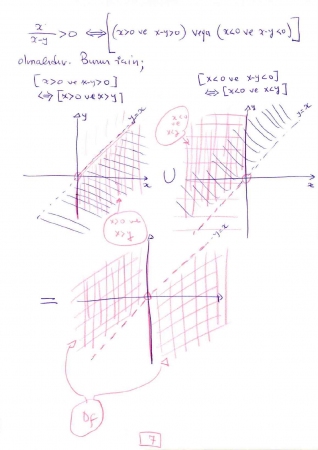 x/(x-y) > 0 ⟺ [(x>0 ve x-y>0) veya (x<0 ve x-y<0)]
olmalıdır. Bunun için;
[x>0 ve x-y>0]
⟺ [x>0 ve x>y]
[x<0 ve x-y<0]
⟺ [x<0 ve x<y]
y
y=x
x
x<0
ve
x<y
y
y=x
x
∪
x>0 ve
y=x
=
Df
7